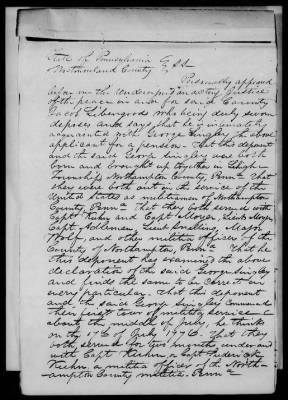 State of Pennsylvania } SS
Northumberland County }
Personally appeared
before me the undersigned acting Justice
of the peace in and for said County
Jacob Libergood who being duly sworn
deposes and says, that he is intimately
acquainted with George Singley, the above
applicant for a pension. That this deponent
and the said George Singley was both
born and brought up together in Lehigh
Township Northampton County, Penna. That
they were both out in the service of the
United States as militiamen of Northampton
County Penna. That they both served with
Capt Kuhn and Capt Moyer, Lieut Moyer,
Capt Adleman, Lieut Snelling, Major
and other militia officers of the
County of Northampton, Penna. That he
this deponent has examined the above
declaration of the said George Singley
and finds the same to be correct in
every particular. That this deponent
and the said George Singley Commenced
their first tour of military service
about the middle of July, he thinks
on the of July 1776. That they
both served for two months under and
with Capt Kuhn, or Capt Frederick
Kuhn, a militia officer of the North-
ampton County militia. Penna